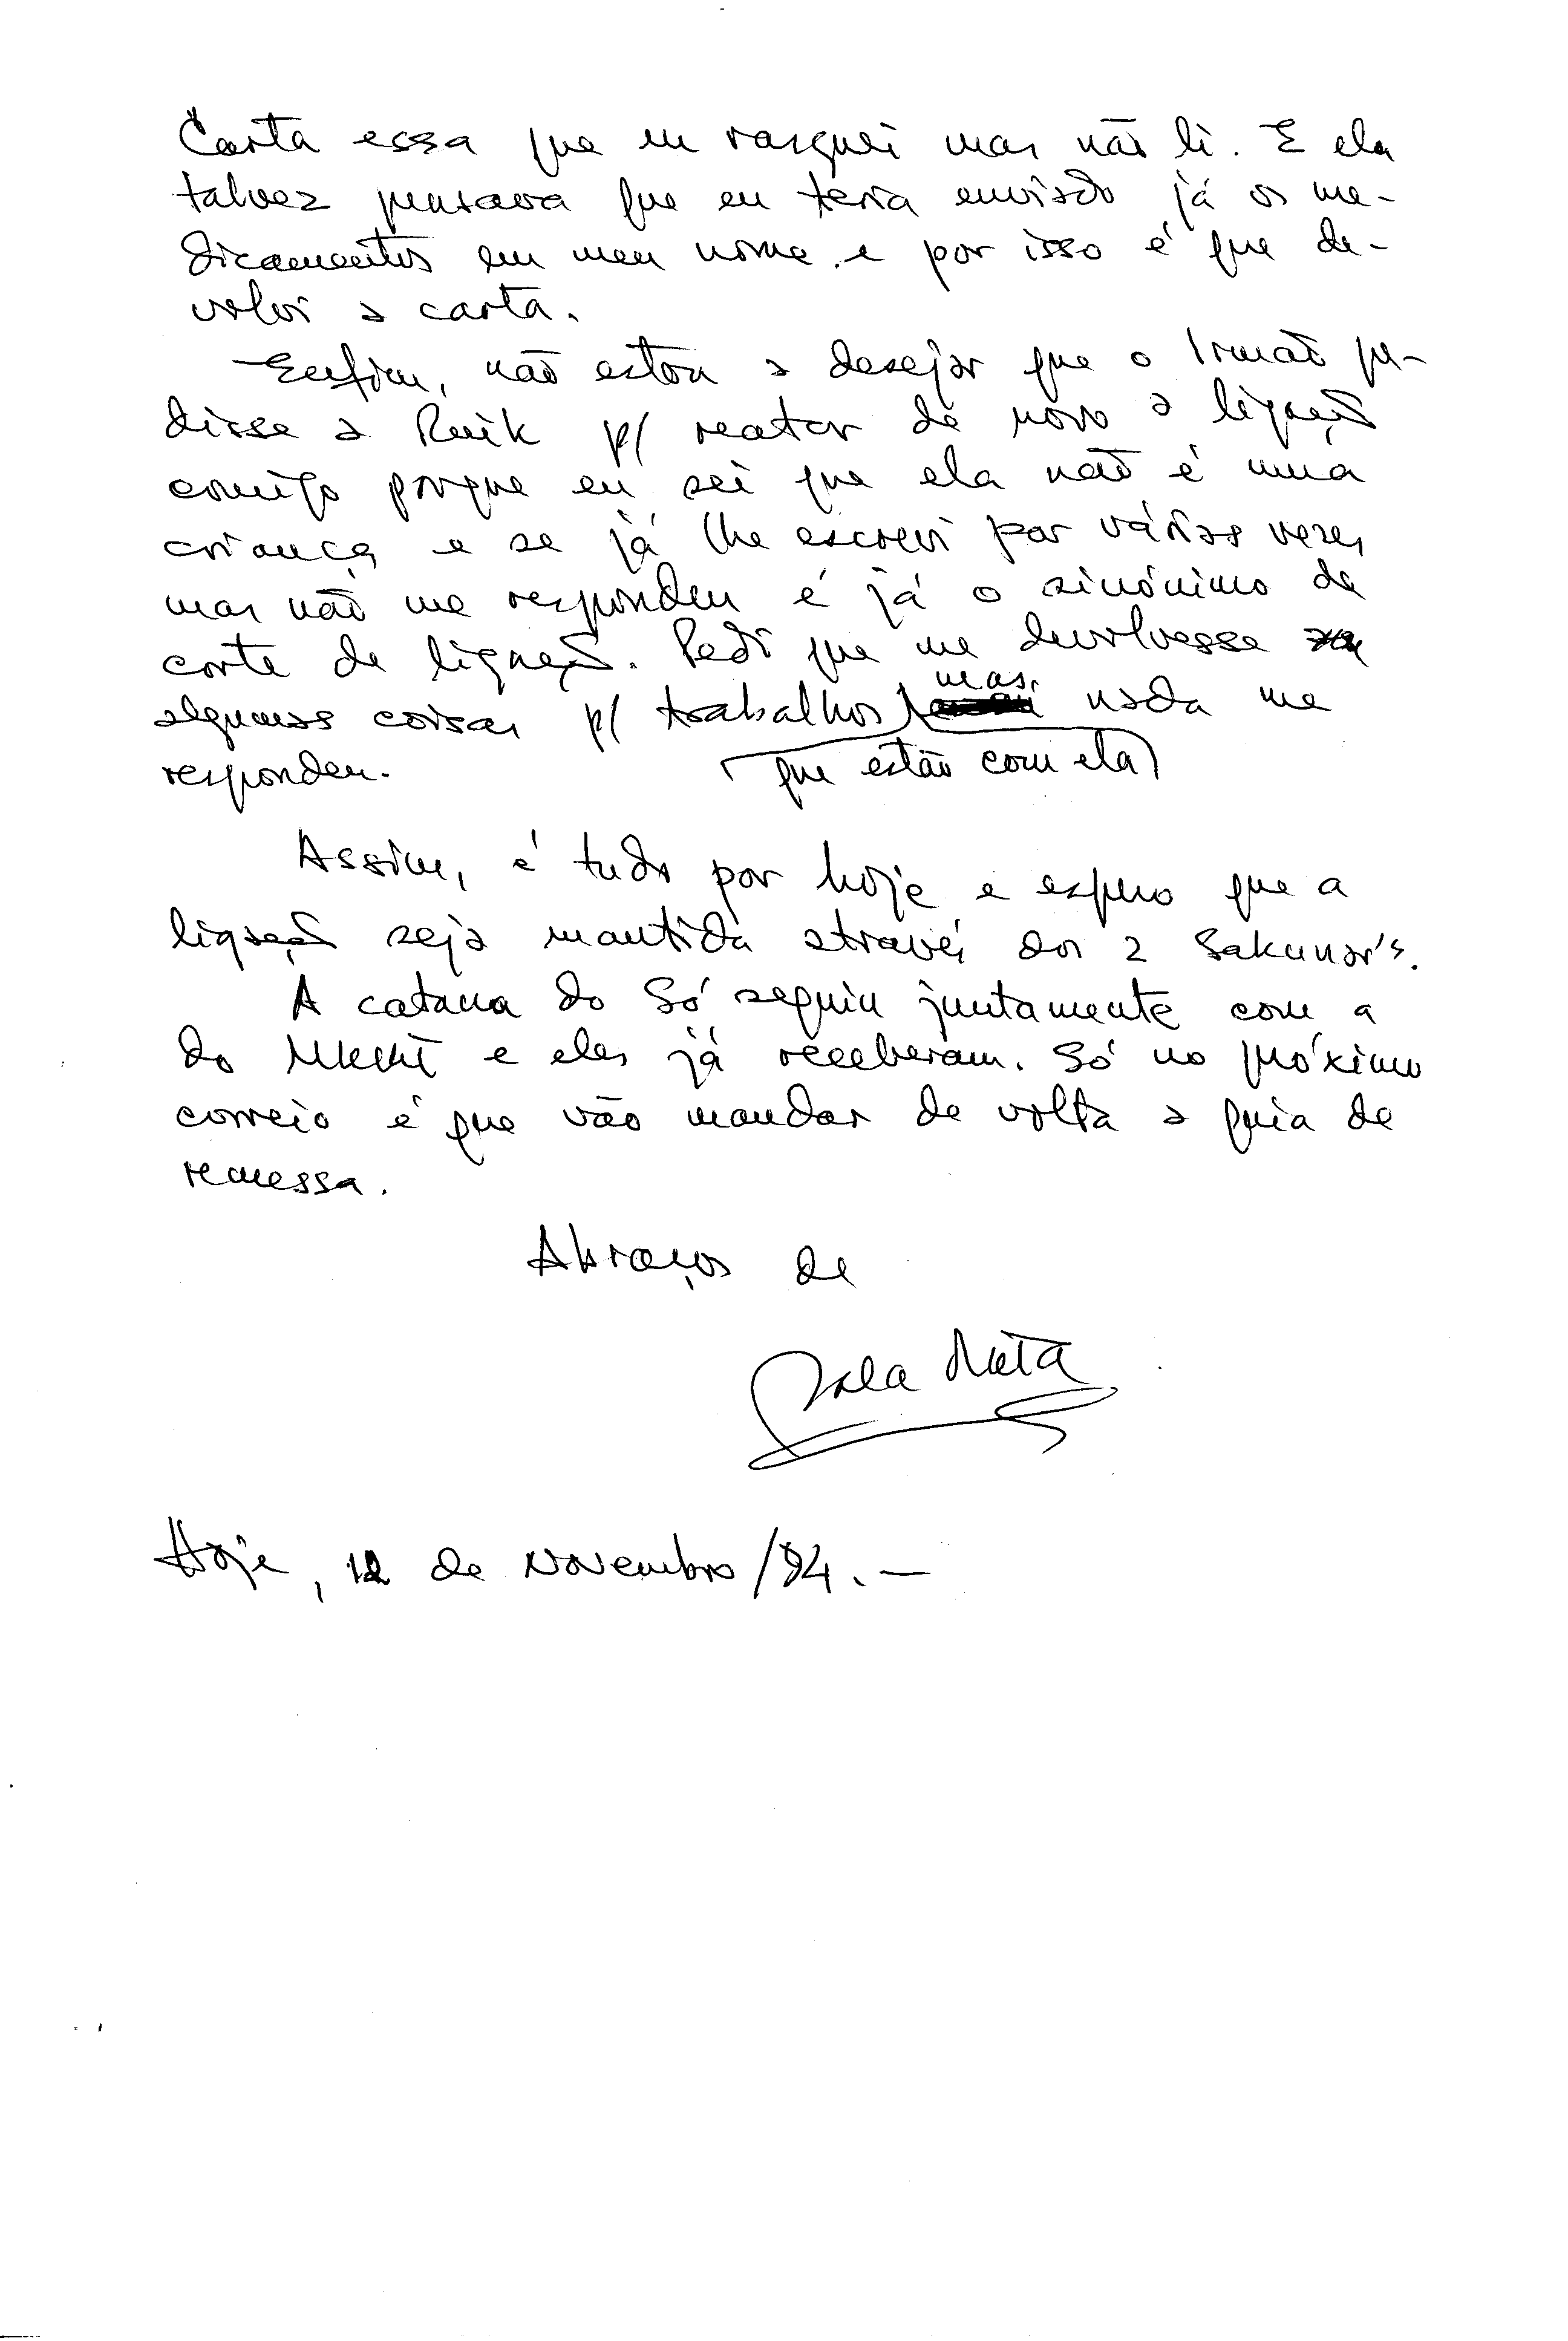 Carta essa que eu rasguei mas não li. E ela
talvez pensava que eu teria enviado já os me-
dicamentos em meu nome e por isso é que de-
volvi a carta.
Enfim, não estou a desejar que o Irmão pe-
disse a Ruik p/ reatar de novo a ligação
comigo porque eu sei que ela não é uma
criança e se já lhe escrevi por várias vezes
mas não me respondeu é já o sinónimo de
corte de ligação. Pedi que me devolvesse
algumas coisas p/ trabalhos mas nada me
respondeu. que estão com ela
Assim, é tudo por hoje e espero que a
ligação seja mantida através dos 2 Sakunar's.
A catana do Só seguiu juntamente com a
do e eles já receberam. Só no próximo
correio é que vão mandar de volta a guia de
remessa.
Abraços de
Mala
Hoje, 12 de Novembro/94.-